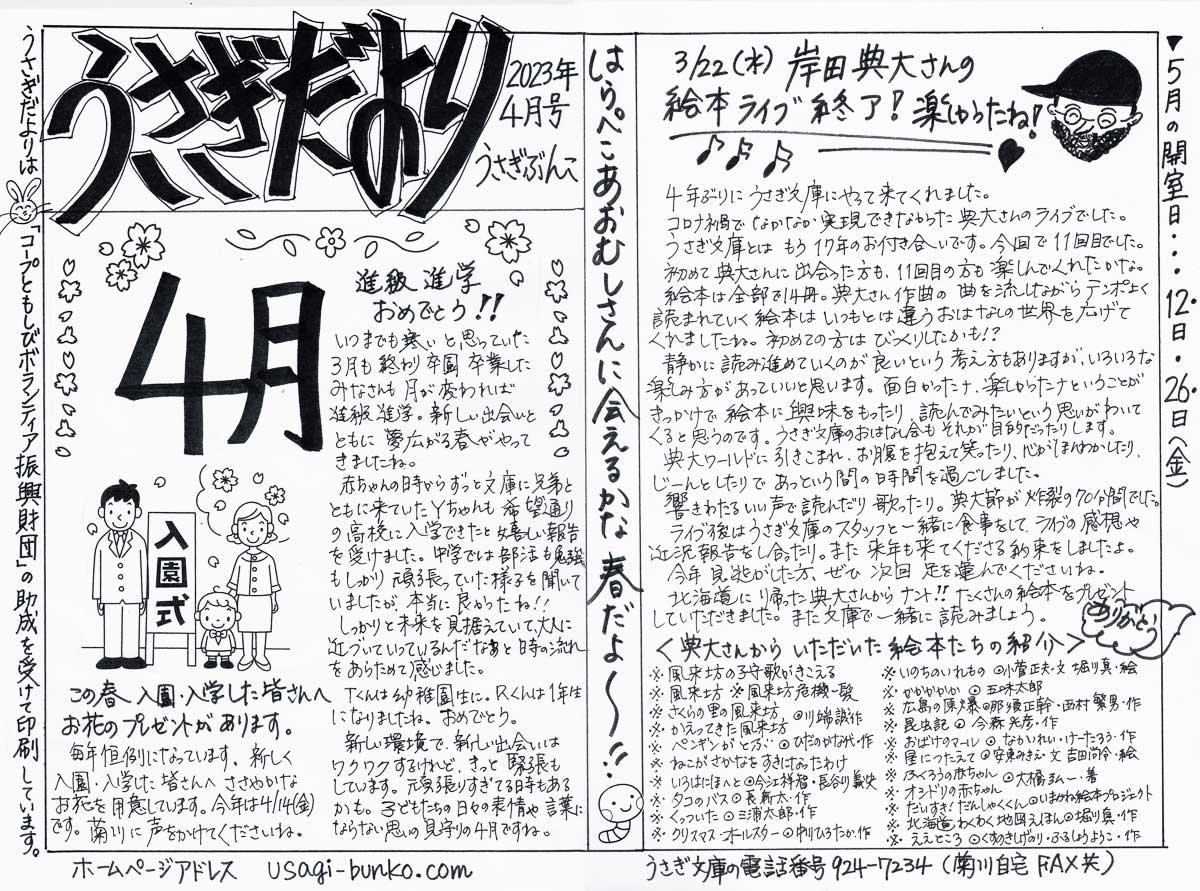 うさぎだより
2023年
4月号
うさぎぶんこ
うさぎだよりは「コープともしびボランティア振興財団」の助成を受けて印刷しています。
4月
進級 進学
おめでとう!!
いつまでも寒いと思っていた
3月も終わり 卒園 卒業した
みなさんも 月が変われば
進級 進学。新しい出会いと
ともに 夢広がる春がやって
きましたね。
赤ちゃんの時からずっと文庫に兄弟と
ともに来ていたYちゃんも 希望通り
の高校に入学できたと嬉しい報告
を受けました。中学では部活も勉強
もしっかり 頑張っていた様子を聞いて
いましたが、本当に良かったね!!
しっかりと未来を見据えていて、大人に
近づいていっているんだなあと 時の流れ
をあらためて感じました。
Tくんは幼稚園生に。Rくんは1年生
になりましたね。おめでとう。
新しい環境で、新しい出会いは
ワクワクするけれど、きっと 緊張も
しています。頑張りすぎてる時もある
かも。子どもたちの日々の表情や言葉に
ならない思いの見守りの4月ですね。
入園式
この春 入園・入学した皆さんへ
お花のプレゼントがあります。
毎年恒例になっています。新しく
入園・入学した皆さんへ ささやかな
お花を用意しています。今年は4/14(金)
です。菊川に声をかけてくださいね。
はらぺこあおむしさんに会えるかな 春だよ〜!!
3/22(水) 岸田典大さんの
絵本ライブ 終了! 楽しかったね!
4年ぶりにうさぎ文庫にやって来てくれました。
コロナ禍でなかなか実現できなかった典大さんのライブでした。
うさぎ文庫とは もう17年のお付き合いです。今回で11回目でした。
初めて典大さんに出会った方も、11回目の方も楽しんでくれたかな。
絵本は全部で14冊。典大さん作曲の 曲を流しながらテンポよく
読まれていく絵本は いつもとは違うおはなしの世界を広げて
くれましたね。初めての方は びっくりしたかも!?
静かに読み進めていくのが良いという考え方もありますが、いろいろな
楽しみ方があっていいと思います。面白かったナ、楽しかったナということが
きっかけで、絵本に興味をもったり、読んでみたいという思いがわいて
くると思うのです。うさぎ文庫のおはなし会もそれが目的だったりします。
典大ワールドに引きこまれ、お腹を抱えて笑ったり、心がほんわかしたり、
じーんとしたりで あっという間の時間を過ごしました。
響きわたるいい声で読んだり 歌ったり。典大節が炸裂の70分間でした。
ライブ後はうさぎ文庫のスタッフと一緒に食事をして、ライブの感想や
近況報告をし合ったり。また 来年も来てくださる約束をしましたよ。
今年見逃がした方、ぜひ 次回 足を運んでくださいね。
北海道に帰った典大さんから ナント!! たくさんの絵本をプレゼント
していただきました。また文庫で一緒に読みましょう。
ありがとう
<典大さんからいただいた絵本たちの紹介>
※ 風来坊の子守歌がきこえる
※ 風来坊 ※風来坊危機一髪
※ さくらの里の風来坊 ⊙川端誠作
※ かえってきた風来坊
※ ペンギンがとぶ ⊙ひだのかな代・作
※ ねこがさかなをすきになったわけ
※ いろはにほへと⊙今江祥智・長谷川義史
※ タコのバス ⊙長新太・作
※ くっついた ⊙三浦太郎・作
※ クリスマス・オールスター ⊙中川ひろたか・作
※ いのちのいれもの ⊙小菅正夫・文 堀川真・絵
※ かかかかか ⊙五味太郎
※ 広島の原爆⊙那須正幹・西村繁男・作
※ 昆虫記 ⊙今森光彦・作
※ おばけのマール ⊙なかいれい・けーたろう・作
※ 星につたえて ⊙安東みきえ・文 吉田尚令・絵
※ ふくろうの赤ちゃん
※ オシドリの赤ちゃん ⊙大橋弘一・著
※ だいすき!だんしゃくくん⊙いまかね絵本プロジェクト
※ 北海道わくわく地図えほん⊙堀川真・作
※ ええところ ⊙くすのきしげのり・ふるしょうようこ・作
▼5月の開室日・・・12日・26日(金)
ホームページアドレス usagi-bunko.com
うさぎ文庫の電話番号 924-7234 (菊川自宅 FAX共)